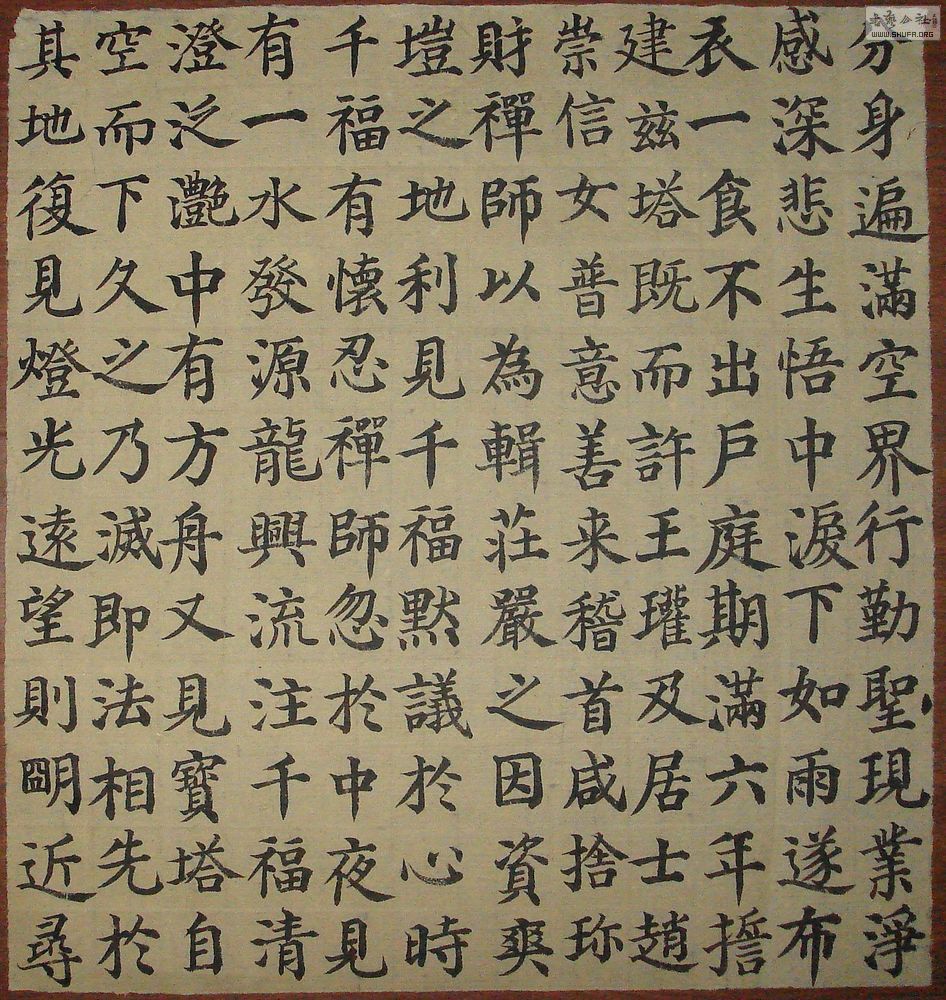 分身遍滿空界行勤聖現業淨
感深悲生悟中淚下如雨遂布
衣一食不出戶庭期滿六年誓
建茲塔既而許王瓘及居士趙
崇信女普意善来稽首咸捨珎
財禪師以為輯莊嚴之因資爽
塏之地利見千福默議於心時
千福有懷忍禪師忽於中夜見
有一水發源龍興流注千福清
澄泛灧中有方舟又見寶塔自
空而下久之乃滅即法相先於
其地復見燈光遠望則朙近尋
WWW.SHUFA.ORG